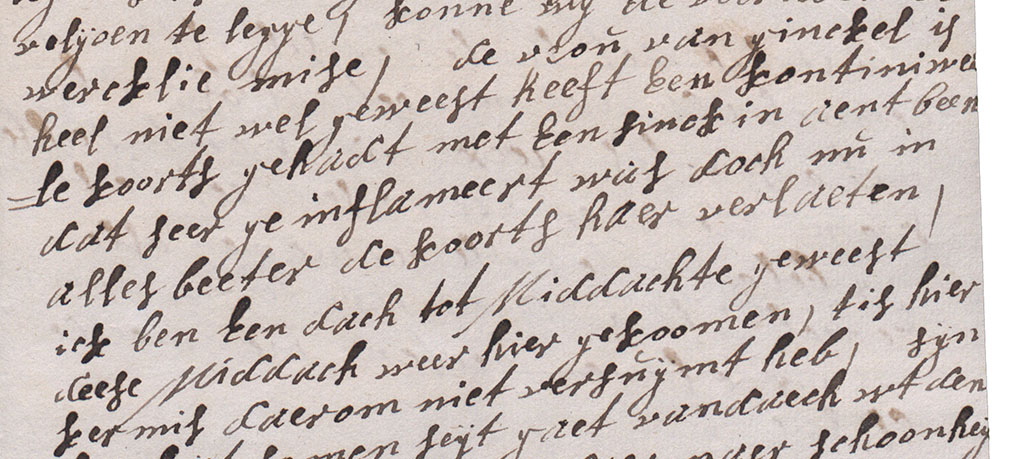 volgoen te legge, konne wy de
wercklie mise, de vrou van ginckel is
heel niet wel geweest heeft Een kontiniwee
=le koorts gehadt met Een sinck in aent been
dat seer ge inflameert was doch nu in
alles beeter de koorts haer verlaeten,
ick ben Een dach tot Middachte geweest
deese Middach weer hier gekoomen, tis hier
kermis daerom niet versuijmt heb, syn
seyt gaet vandaech wt den
schoonhey